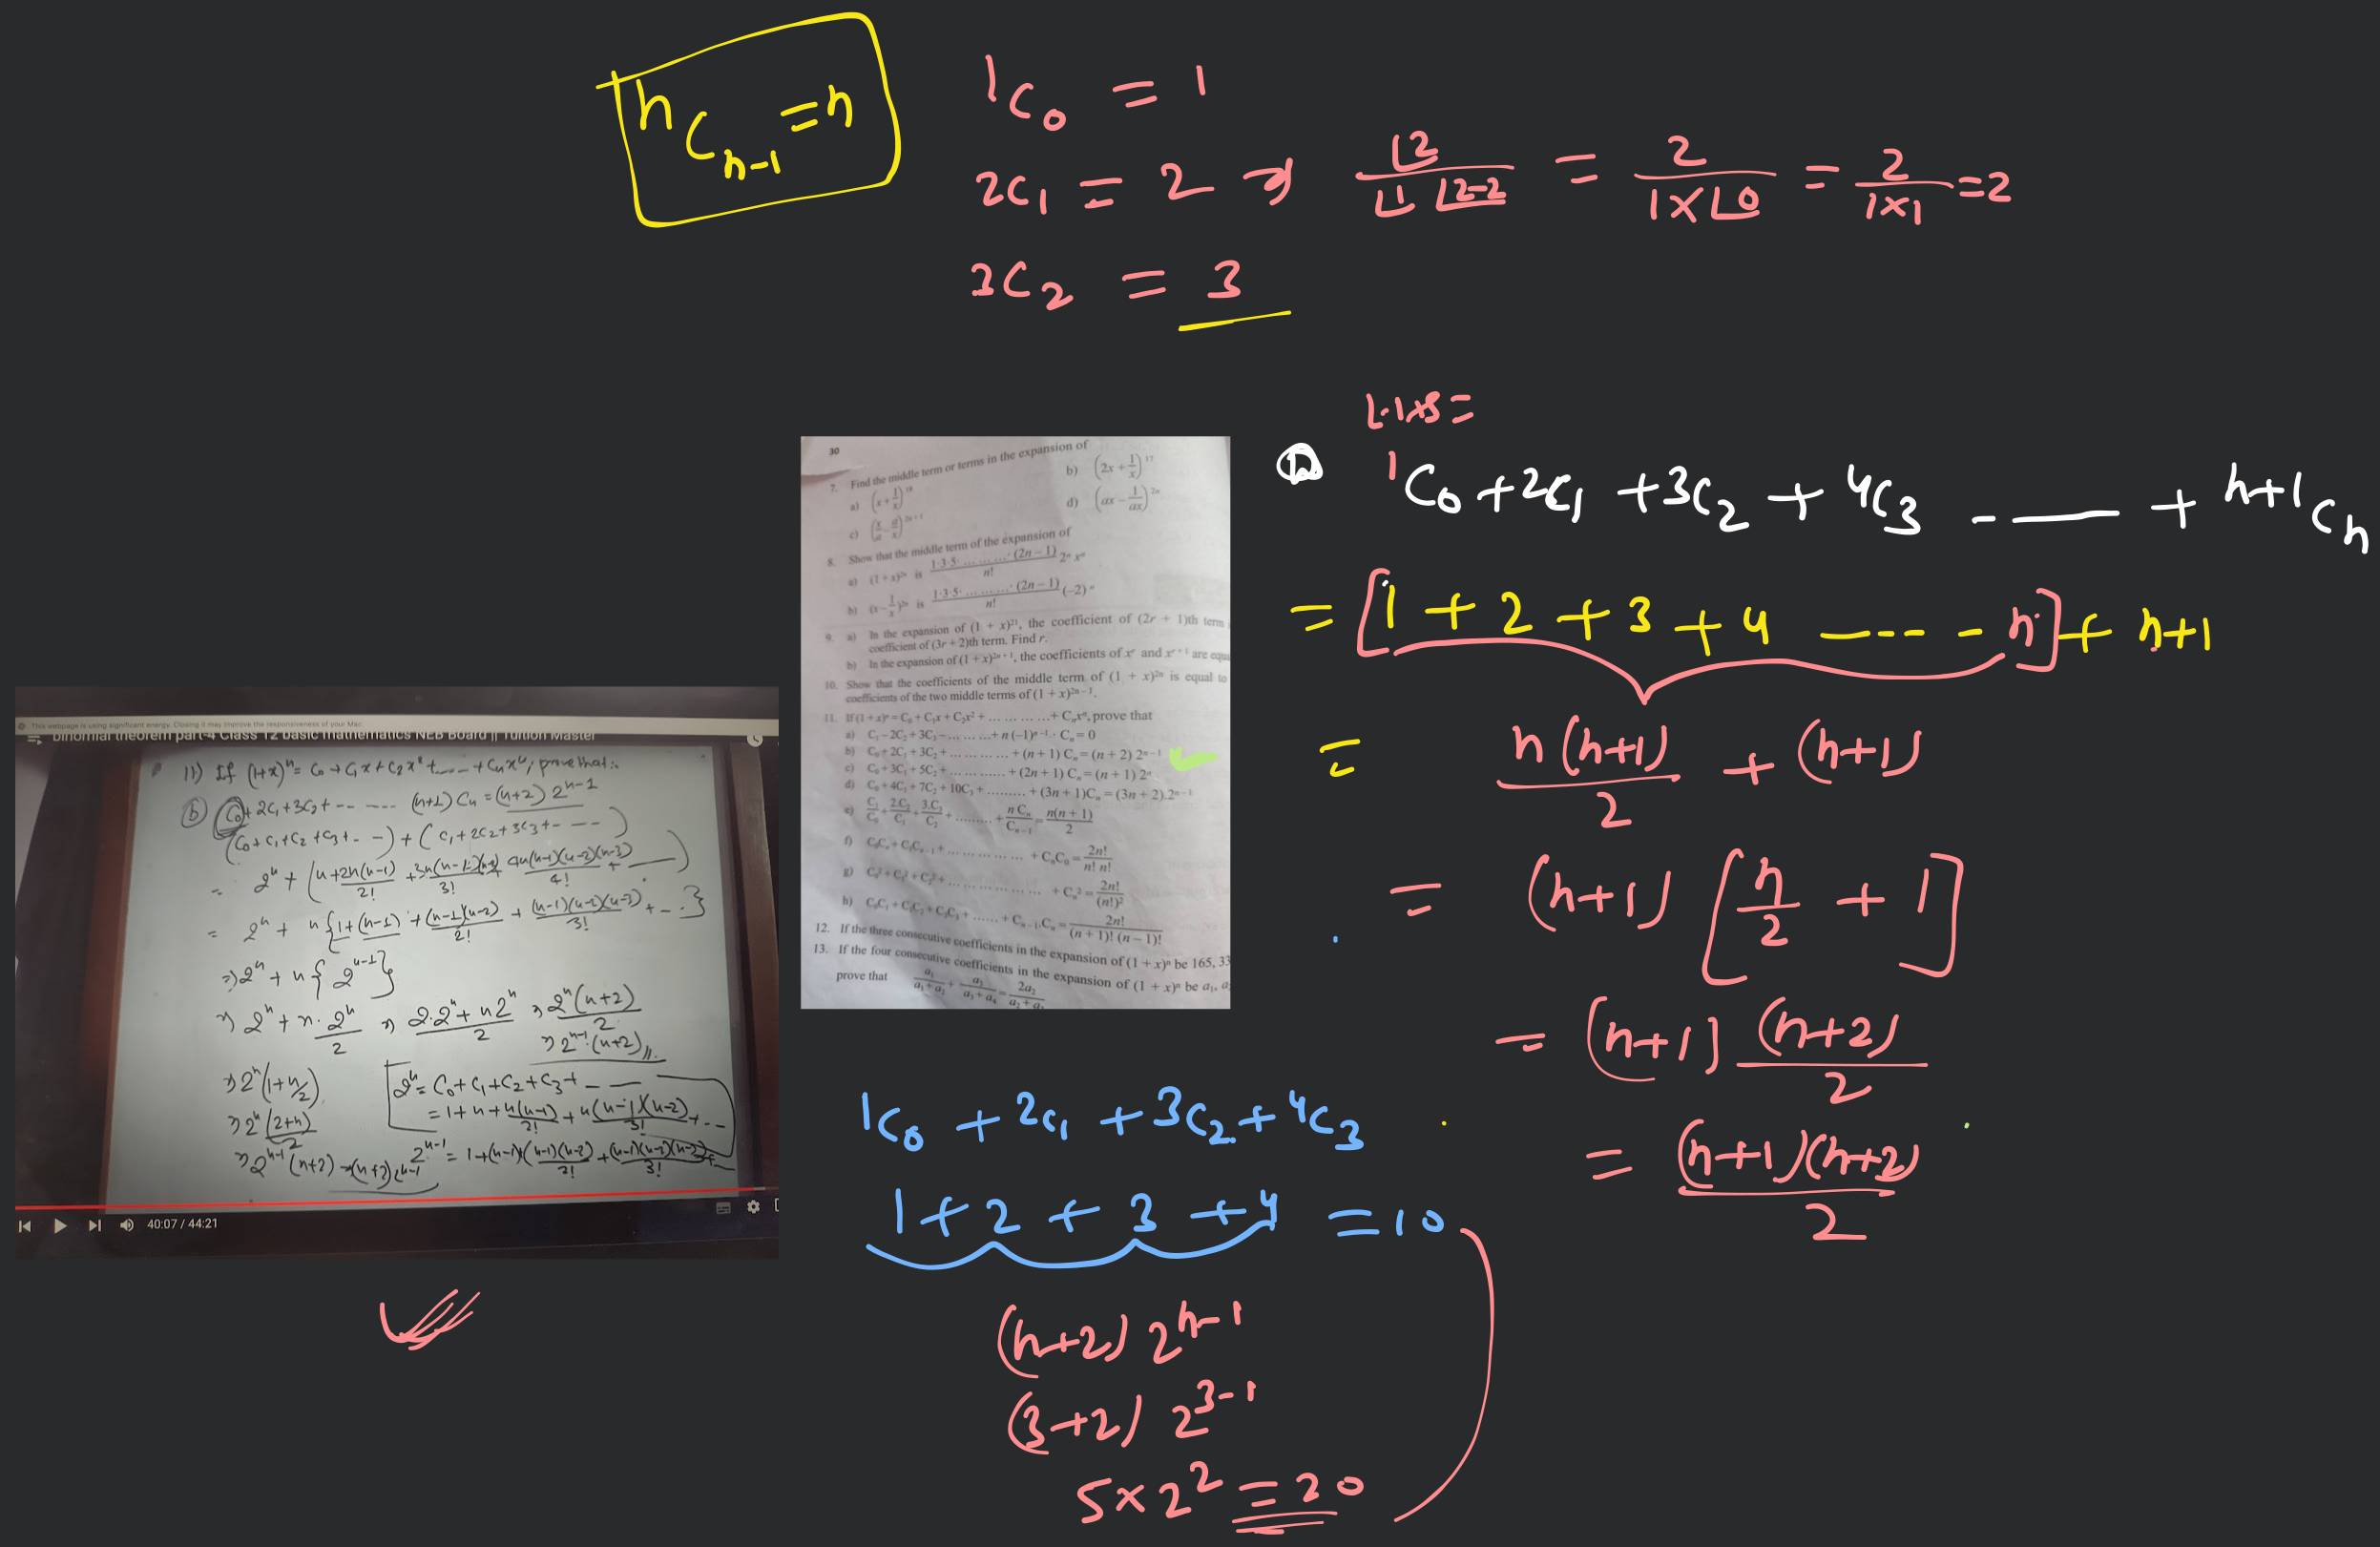 ⁿC_{n-1} = n
¹C₀ = 1
2C₁ = 2 ⇒ ⌊2 / ⌊1 ⌊2-2 = 2 / 1×⌊0 = 2 / 1×1 = 2
3C₂ = 3
L.H.S =
b ¹C₀ + 2C₁ + 3C₂ + ⁴C₃ ------ + ⁿ⁺¹Cₙ
= [1 + 2 + 3 + 4 ---- - n] + n+1
= n(n+1)/2 + (n+1)
= (n+1) [n/2 + 1]
= (n+1) (n+2)/2
= (n+1)(n+2)/2
30
7. Find the middle term or terms in the expansion of
a) (x + 1/x)¹⁸ b) (2x + 1/x)¹⁷
c) (x/a − a/x)²ⁿ⁺¹ d) (ax − 1/ax)²ⁿ
8. Show that the middle term of the expansion of
a) (1 + x)²ⁿ is 1·3·5· ... ... ...·(2n − 1) / n! 2ⁿ xⁿ
b) (x − 1/x)²ⁿ is 1·3·5· ... ... ...·(2n − 1) / n! (−2)ⁿ
9. a) In the expansion of (1 + x)²¹, the coefficient of (2r + 1)th term
coefficient of (3r + 2)th term. Find r.
b) In the expansion of (1 + x)²ⁿ⁺¹, the coefficients of xʳ and xʳ⁺¹ are equa
10. Show that the coefficients of the middle term of (1 + x)²ⁿ is equal to
coefficients of the two middle terms of (1 + x)²ⁿ⁻¹.
11. If (1 + x)ⁿ = C₀ + C₁x + C₂x² + ... ... ... ...+ Cₙxⁿ, prove that
a) C₁ − 2C₂ + 3C₃ − ... ... ...+ n (−1)ⁿ⁻¹· Cₙ = 0
b) C₀ + 2C₁ + 3C₂ + ... ... ... ... + (n + 1) Cₙ = (n + 2) 2ⁿ⁻¹
c) C₀ + 3C₁ + 5C₂ + ... ... ... ... + (2n + 1) Cₙ = (n + 1) 2ⁿ
d) C₀ + 4C₁ + 7C₂ + 10C₃ + ... ... ... + (3n + 1)Cₙ = (3n + 2).2ⁿ⁻¹
e) C₁/C₀ + 2.C₂/C₁ + 3.C₃/C₂ + ... ... ... + n Cₙ/Cₙ₋₁ = n(n + 1)/2
f) C₀Cₙ + C₁Cₙ₋₁ + ... ... ... ... ... + CₙC₀ = 2n!/n! n!
g) C₀² + C₁² + C₂² + ... ... ... ... ... + Cₙ² = 2n!/(n!)²
h) C₀C₁ + C₁C₂ + C₂C₃ + ... ... + Cₙ₋₁.Cₙ = 2n!/(n + 1)! (n − 1)!
12. If the three consecutive coefficients in the expansion of (1 + x)ⁿ be 165, 33
13. If the four consecutive coefficients in the expansion of (1 + x)ⁿ be a₁, a
prove that a₁/a₁ + a₂ + a₃/a₃ + a₄ = 2a₂/a₂ + a₃
This webpage is using significant energy. Closing it may improve the responsiveness of your Mac.
binomial theorem part-4 Class 12 basic mathematics NEB Board || Tuition Master
11) If (1+x)ⁿ = C₀ + C₁x + C₂x² + .... + Cₙxⁿ, prove that:-
b C₀ + 2C₁ + 3C₂ + -- --- (n+1) Cₙ = (n+2) 2ⁿ⁻¹
(C₀ + C₁ + C₂ + C₃ + - --) + (C₁ + 2C₂ + 3C₃ + - --)
= 2ⁿ + (n + 2n(n-1)/2! + 3n(n-1)(n-2)/3! + 4n(n-1)(n-2)(n-3)/4! + —)
= 2ⁿ + n{1 + (n-1) + (n-1)(n-2)/2! + (n-1)(n-2)(n-3)/3! + - .}
⇒ 2ⁿ + n{2ⁿ⁻¹}
⇒ 2ⁿ + n. 2ⁿ/2 ⇒ 2.2ⁿ + n2ⁿ/2 ⇒ 2ⁿ(n+2)/2
⇒ 2ⁿ⁻¹.(n+2)
⇒ 2ⁿ(1+n/2)
⇒ 2ⁿ(2+n)/2
⇒ 2ⁿ⁻¹(n+2) → (n+2) 2ⁿ⁻¹
2ⁿ = C₀ + C₁ + C₂ + C₃ + - —
= 1 + n + n(n-1)/2! + n(n-1)(n-2)/3! + --
2ⁿ⁻¹ = 1 + (n-1) + (n-1)(n-2)/2! + (n-1)(n-2)(n-3)/3! + —
40:07 / 44:21
¹C₀ + ²C₁ + ³C₂ + ⁴C₃
1 + 2 + 3 + 4 = 10
(n+2) 2ⁿ⁻¹
(3+2) 2³⁻¹
5 × 2² = 20